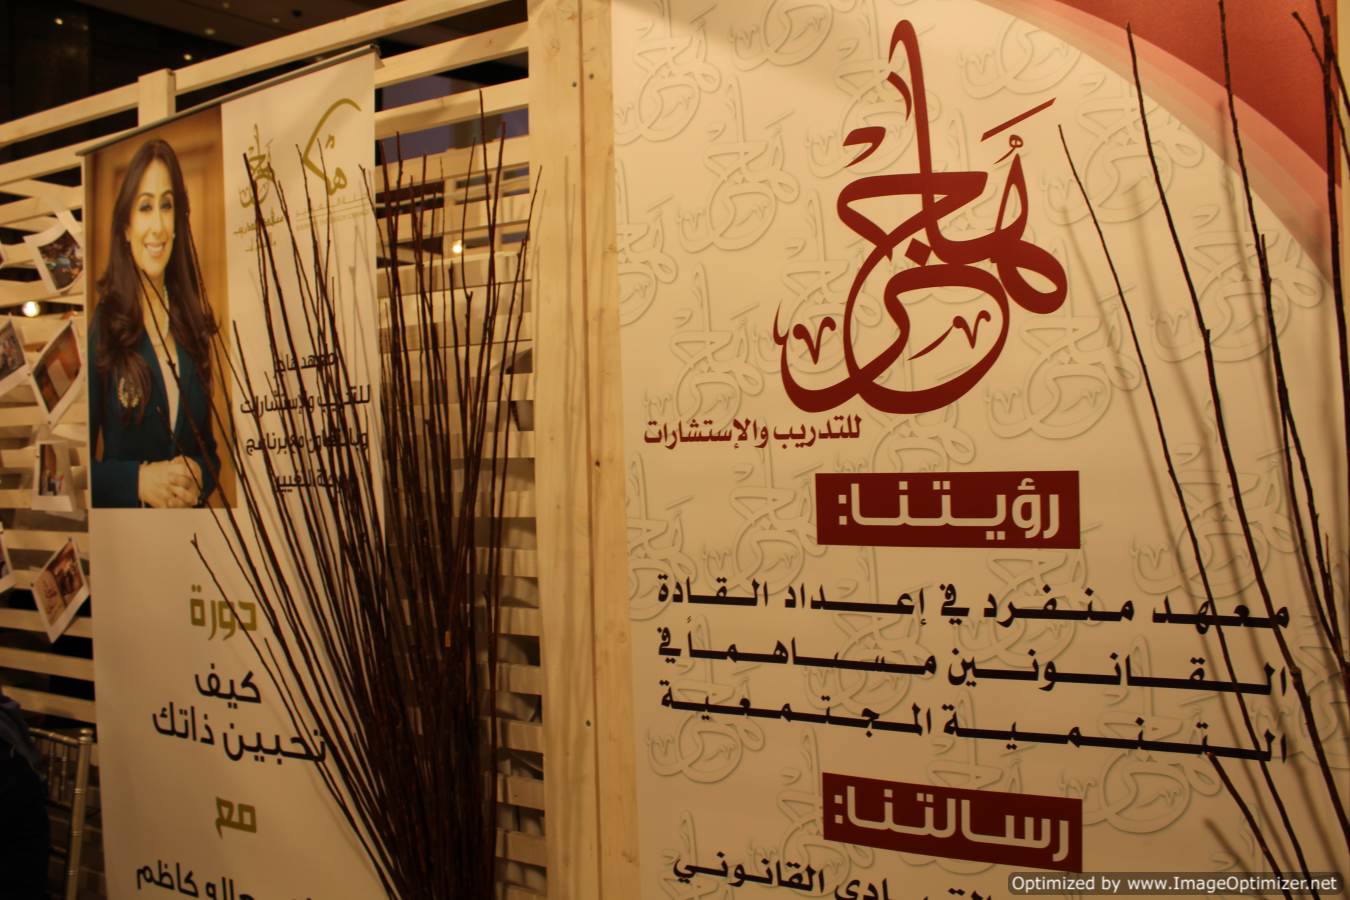 هاجر
للتدريب والإستشارات
رؤيتنا:
معهد منفرد في إعداد القادة
القانونين مساهماً في
التنمية المجتمعية
رسالتنا:
القانوني
معهد هاجر
للتدريب والإستشارات
وبالتعاون مع برنامج
للتغيير
دورة
كيف
تحبين ذاتك
مع
كاظم
Optimized by www.ImageOptimizer.net